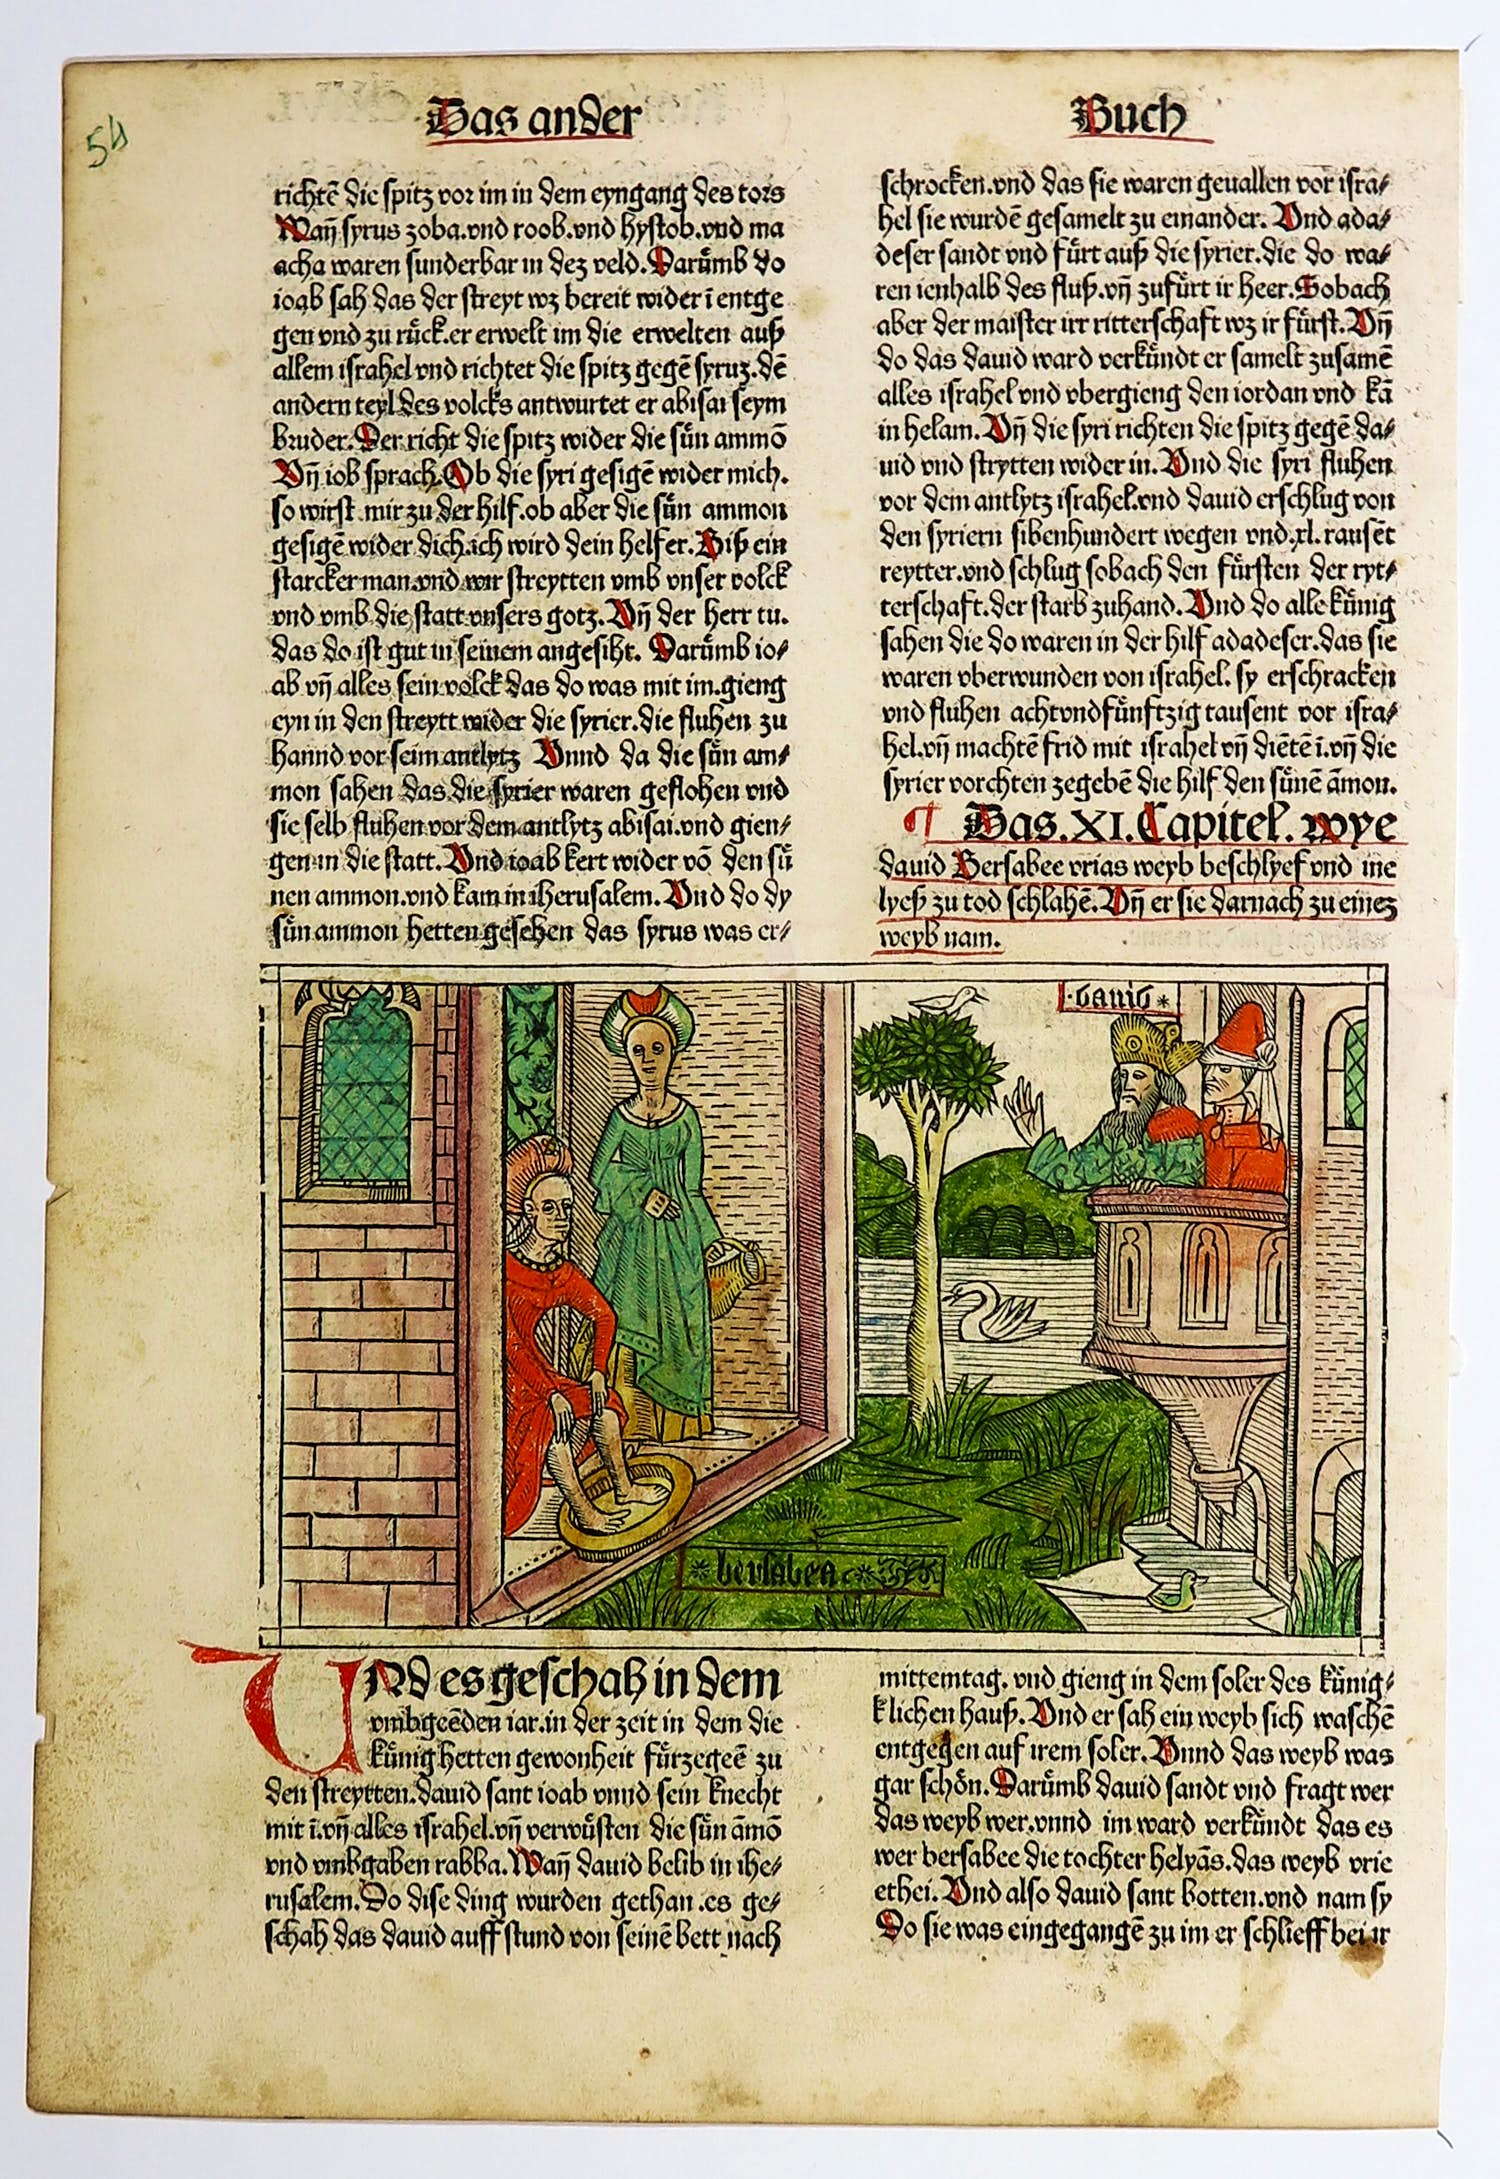 54
Das ander
Buch
richtē die spitz vor im in dem eyngang des tors
Wañ syrus zoba.vnd roob.vnd hystob.vnd ma
acha waren sunderbar in dez veld.Darůmb do
ioab sah das der streyt wz bereit wider ī entge
gen vnd zu růck.er erwelt im die erwelten auß
allem israhel vnd richtet die spitz gegē syruz.dē
andern teyl des volcks antwurtet er abisai seym
bruder.Der richt die spitz wider die sůn ammō
Vñ iob sprach.Ob die syri gesigē wider mich.
so wirst mir zu der hilf.ob aber die sůn ammon
gesigē wider dich.ich wird dein helfer.Biß ein
starcker man.vnd wir streytten vmb vnser volck
vnd vmb die statt vnsers gotz.Vñ der herr tu.
das do ist gut in seinem angesiht. Darůmb io⸗
ab vñ alles sein volck das do was mit im.gieng
eyn in den streytt wider die syrier.die fluhen zu
hannd vor seim antlytz Vnnd da die sůn am⸗
mon sahen das die syrier waren geflohen vnd
sie selb fluhen vor dem antlytz abisai.vnd gien⸗
gen in die statt.Vnd ioab kert wider vō den sů
nen ammon.vnd kam in iherusalem.Vnd do dy
sůn ammon hetten gesehen das syrus was er⸗
schrocken.vnd das sie waren geuallen vor isra⸗
hel sie wurdē gesamelt zu einander. Vnd ada⸗
deser sandt vnd fůrt auß die syrier.die do wa⸗
ren ienhalb des fluß.vñ zufůrt ir heer.Sobach
aber der maister irr ritterschaft wz ir fůrst.Vñ
do das dauid ward verkůndt er samelt zusamē
alles israhel vnd vbergieng den iordan vnd kā
in helam.Vñ die syri richten die spitz gegē da⸗
uid vnd strytten wider in.Vnd die syri fluhen
vor dem antlytz israhel.vnd dauid erschlug von
den syriern sibenhundert wegen vnd.xl.tausēt
reytter.vnd schlug sobach den fůrsten der ryt⸗
terschaft.der starb zuhand.Vnd do alle kůnig
sahen die do waren in der hilf adadeser.das sie
waren vberwunden von israhel. sy erschracken
vnd fluhen achtvndfůnftzig tausent vor isra⸗
hel.vñ machtē frid mit israhel vñ diētē ī.vñ die
syrier vorchten zegebē die hilf den sůnē āmon.
¶ Das.XI.Capitel. wye
dauid Bersabee vrias weyb beschlyef vnd ine
lyeß zu tod schlahē.Vñ er sie darnach zu einez
weyb nam.
.dauid*
*bersabea*
VNd es geschah in dem
vmbgeēden iar.in der zeit in dem die
kůnig hetten gewonheit fůrzegeē zu
den streytten.dauid sant ioab vnnd sein knecht
mit ī.vñ alles israhel.vñ verwůsten die sůn āmō
vnd vmbgaben rabba.Wañ dauid belib in ihe⸗
rusalem.Do dise ding wurden gethan.es ge⸗
schah das dauid auff stund von seinē bett nach
mittemtag. vnd gieng in dem soler des kůnig⸗
klichen hauß.Vnd er sah ein weyb sich waschē
entgegen auf irem soler.Vnnd das weyb was
gar schön.Darůmb dauid sandt vnd fragt wer
das weyb wer.vnnd im ward verkůndt das es
wer bersabee die tochter helyās.das weyb vrie
ethei.Vnd also dauid sant botten.vnd nam sy
Do sie was eingegangē zu im er schlieff bei ir